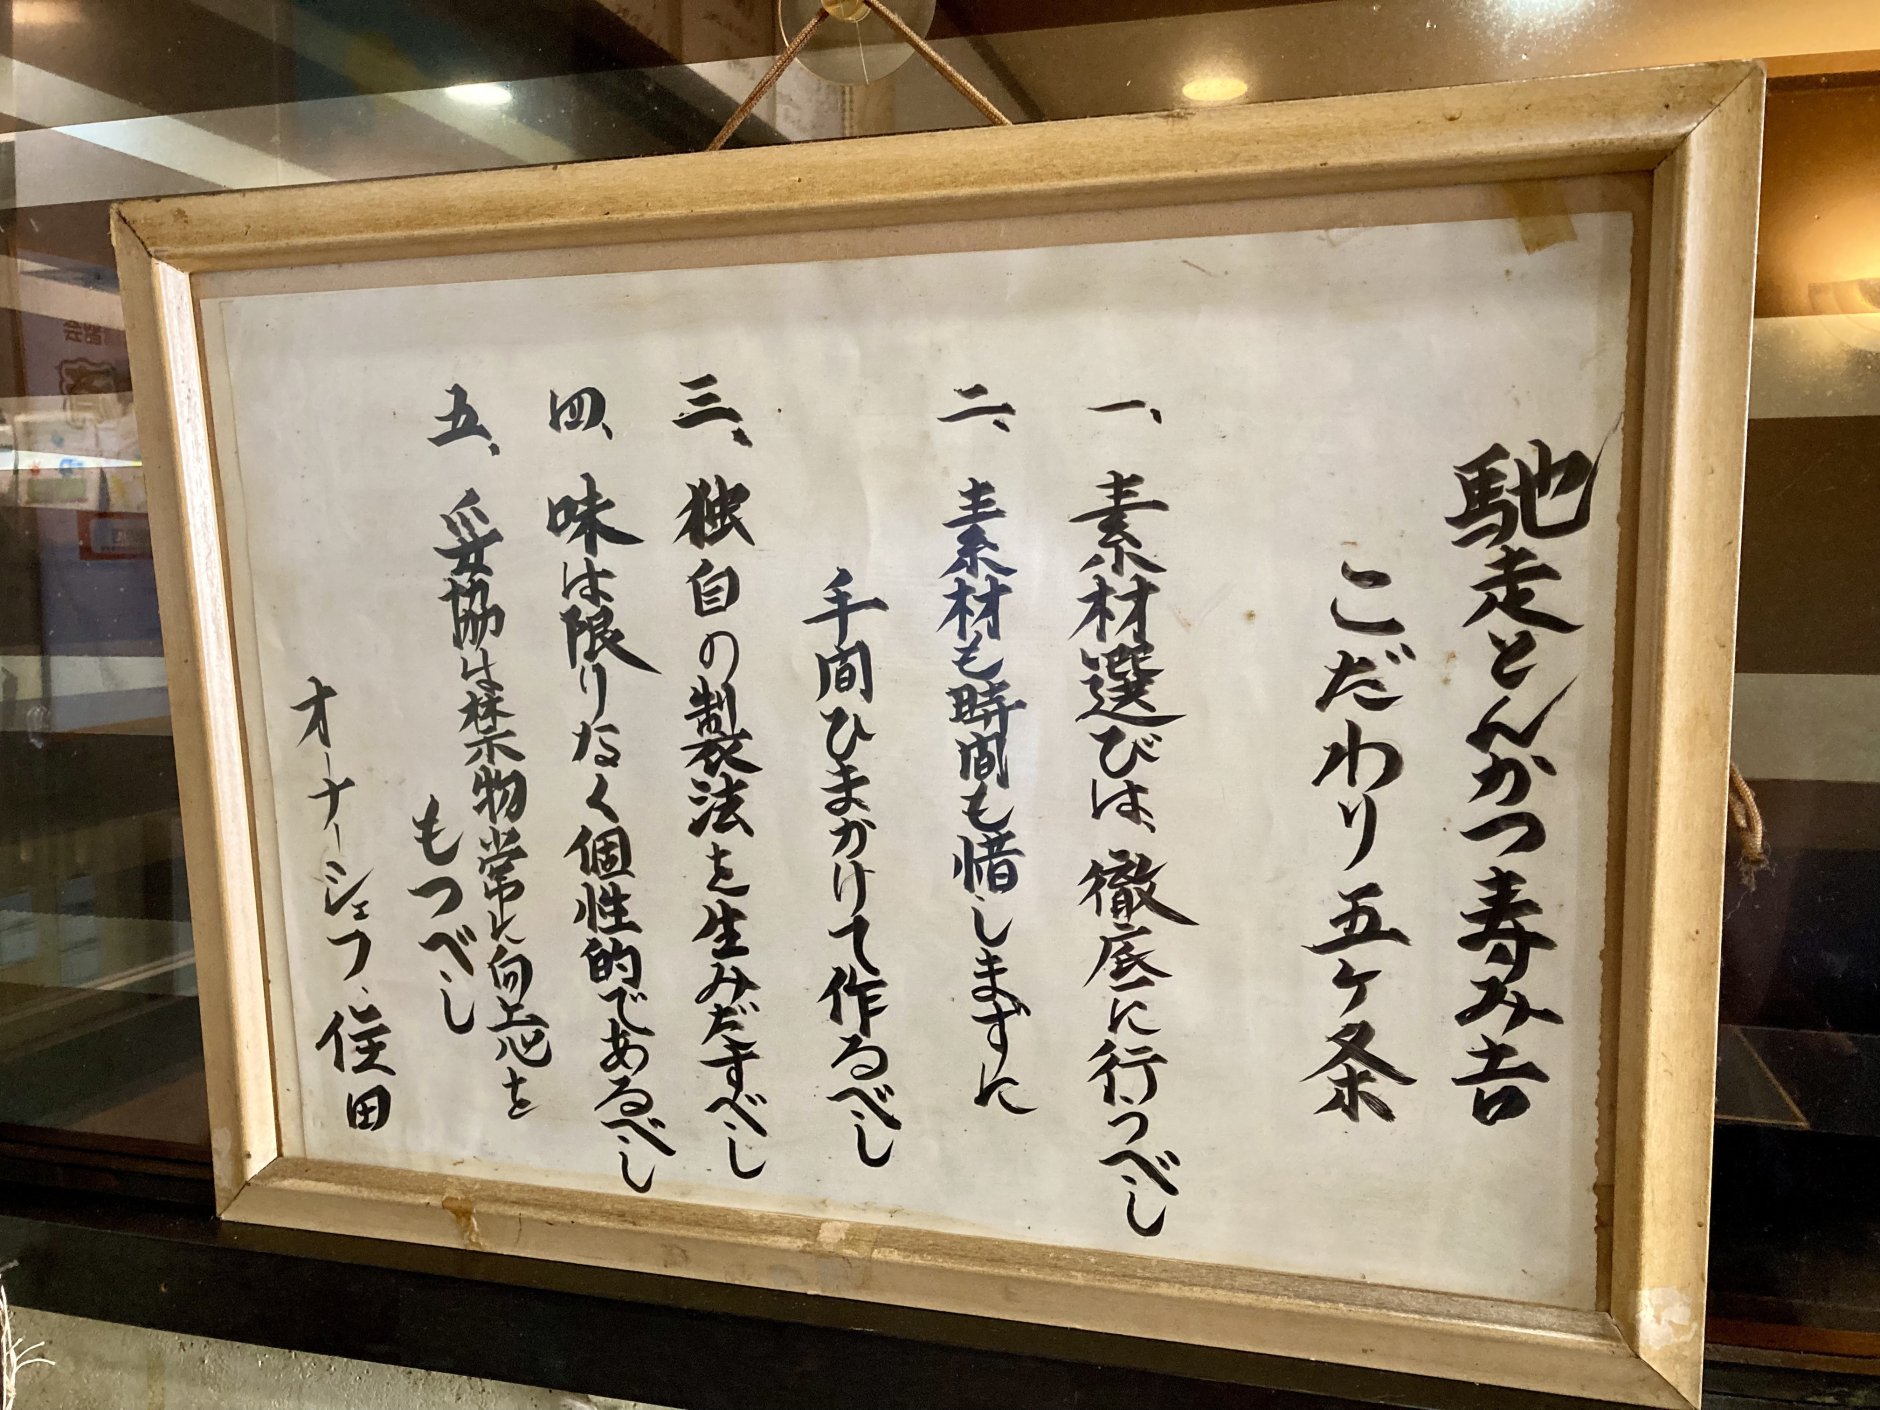 馳走とんかつ寿み吉
こだわり五ヶ条
一、素材選びは、徹底に行うべし
二、素材も時間も惜しまずに
手間ひまかけて作るべし
三、独自の製法を生みだすべし
四、味は限りなく個性的であるべし
五、妥協は禁物常に向上心を
もつべし
オーナーシェフ、住田